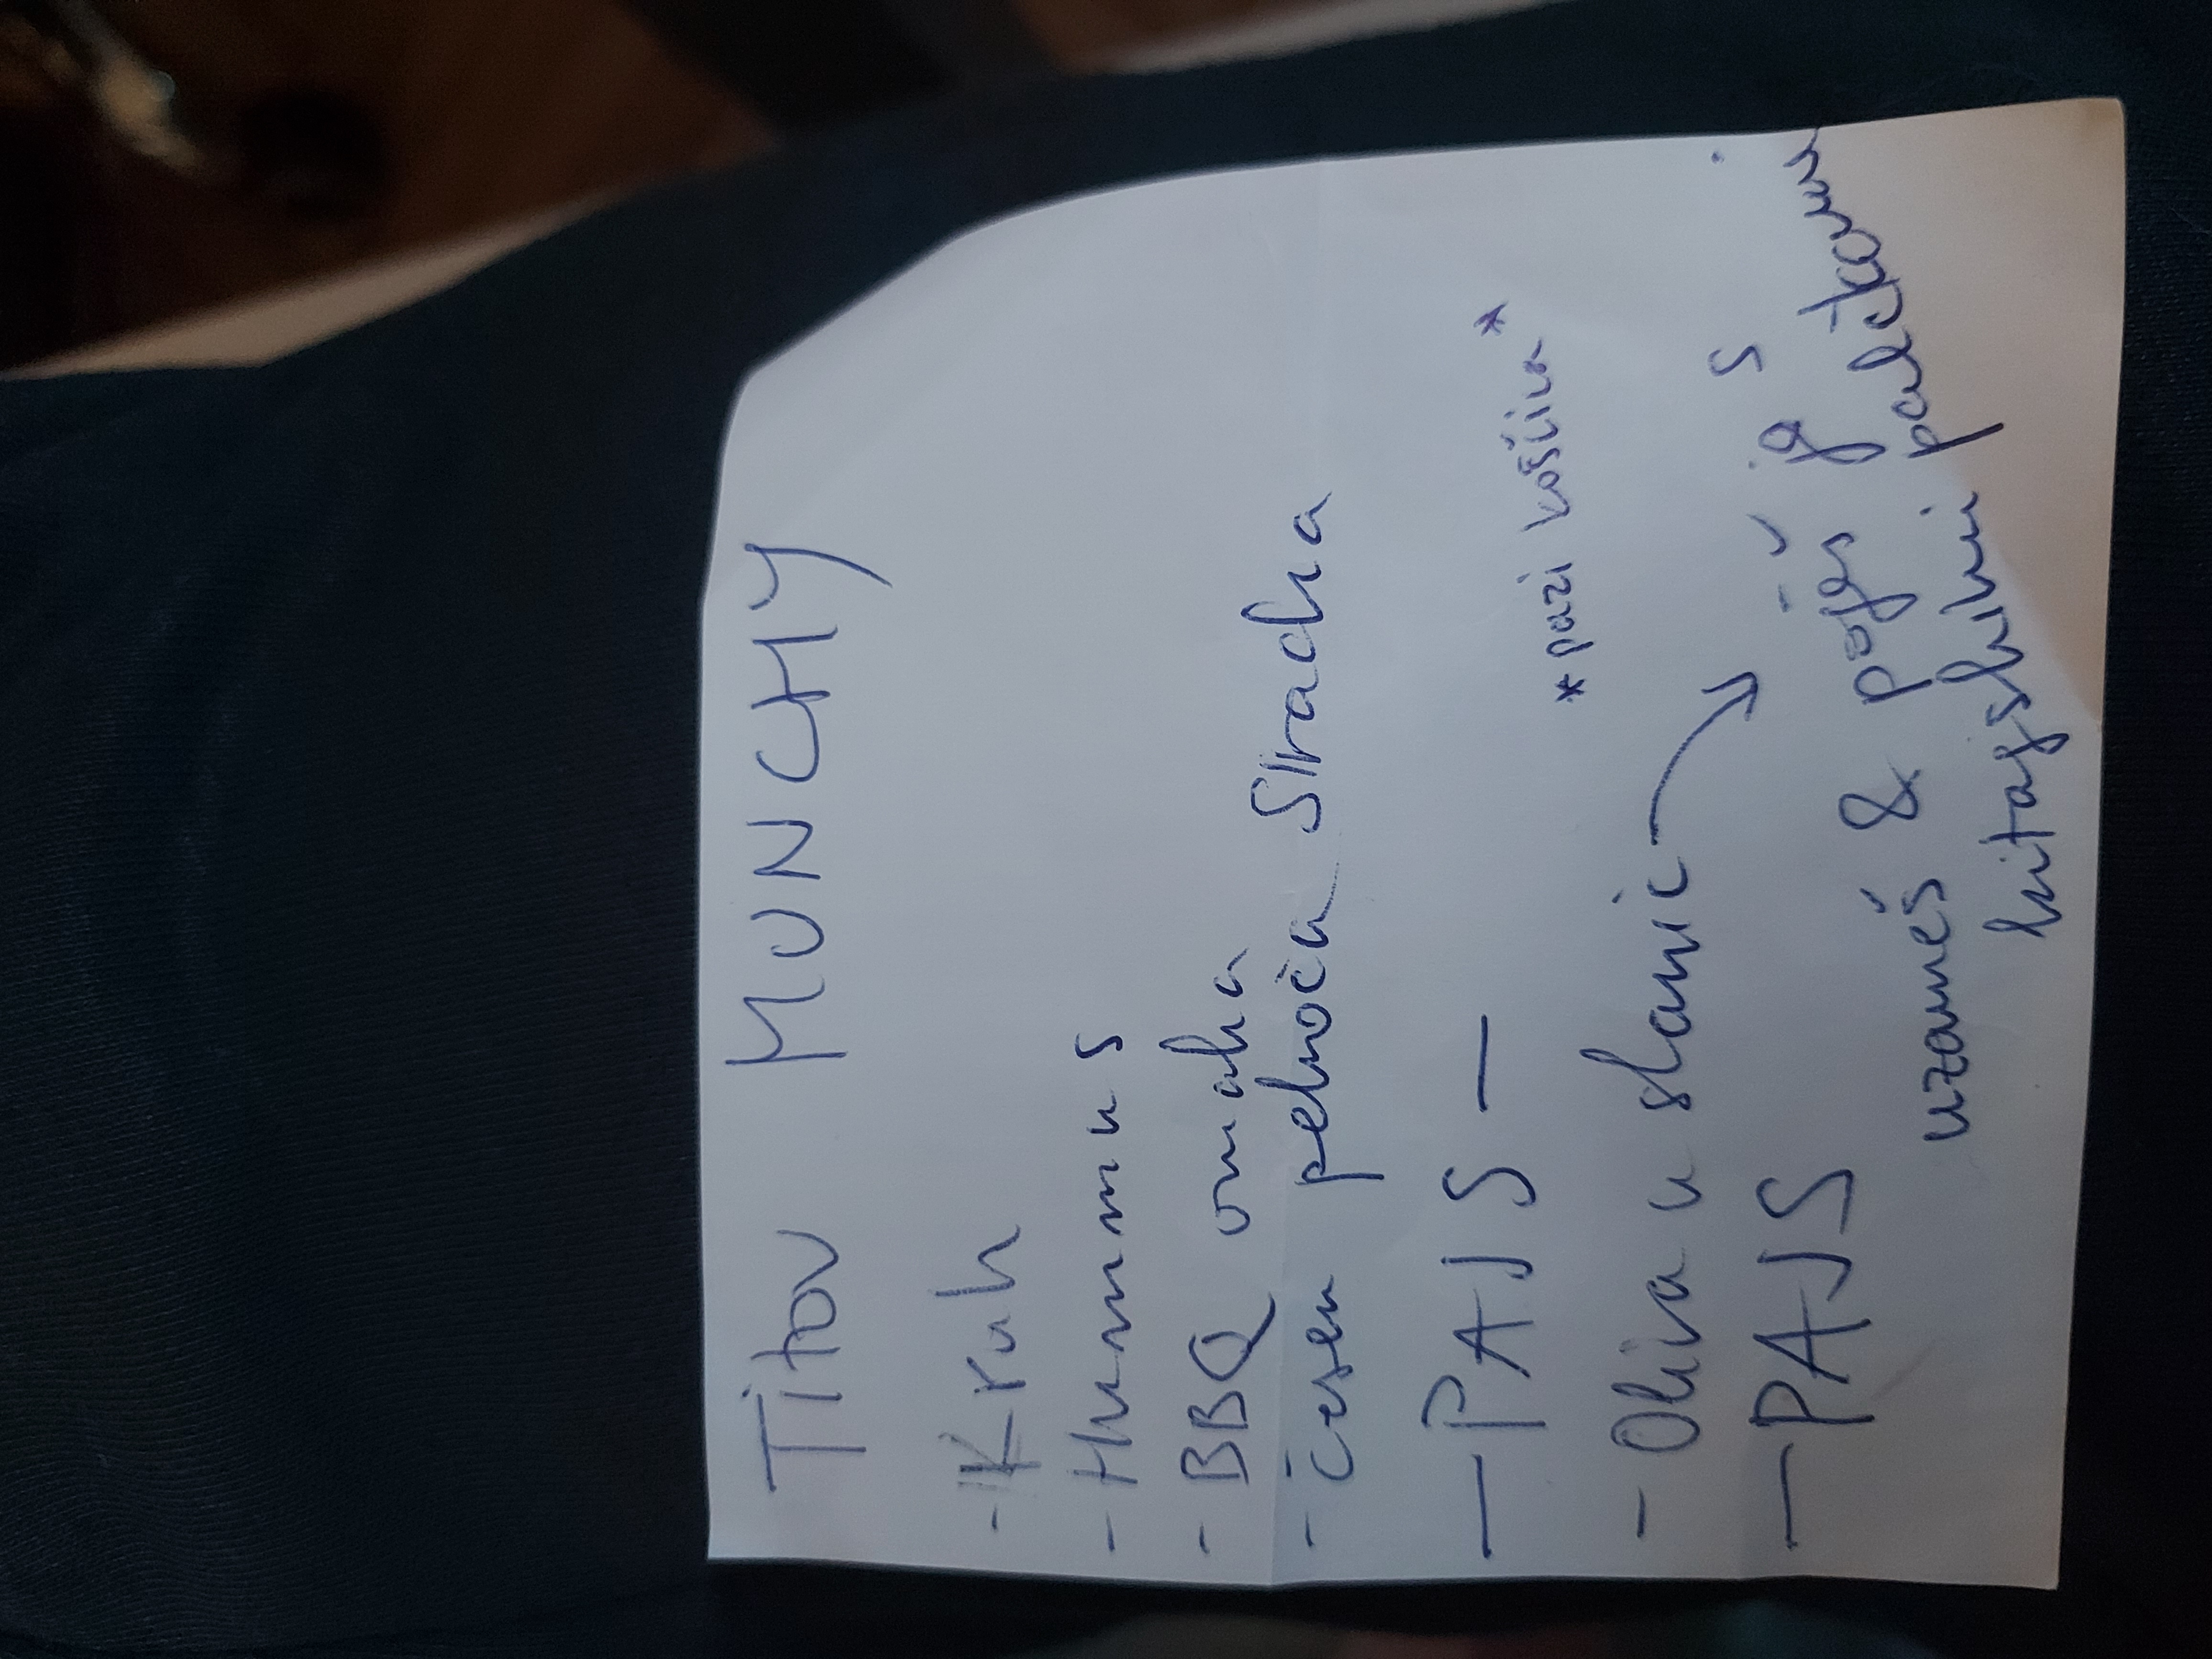 Titov MUNCHY
- Kruh
- Hummus
- BBQ omaka
- česen pekoča Siracha
— PAJS —
*pazi koščica*
- Oliva u slanic
— PAJS
uzameš & poješ jo s
kitajskimi palčkami